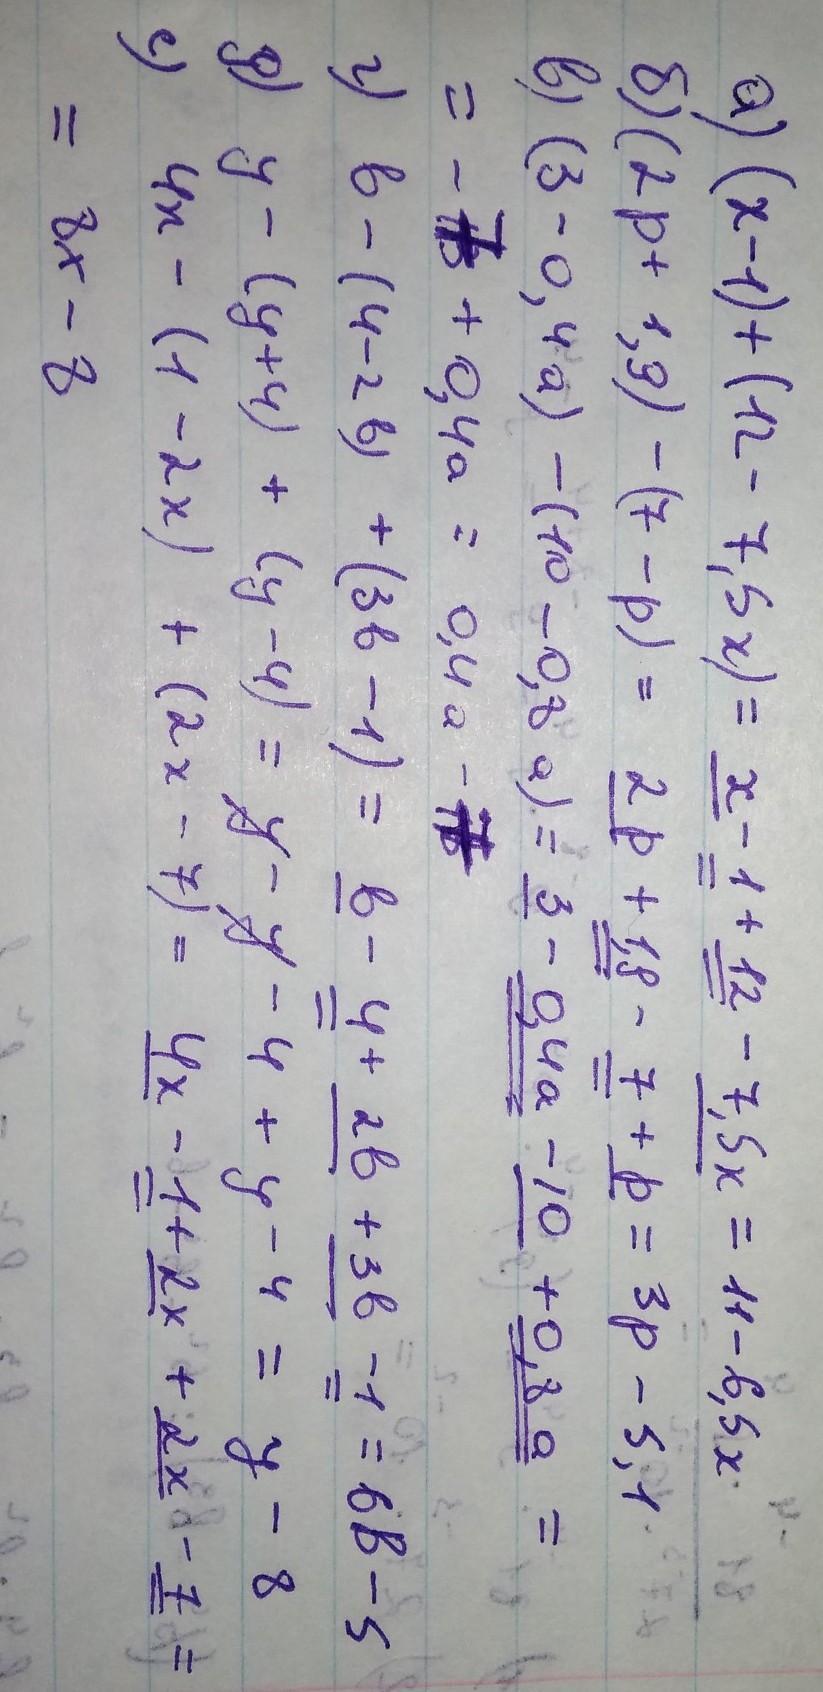 а) (x-1)+(12-7,5x)= x-1+12-7,5x=11-6,5x.
б) (2p+1,9)-(7-p)= 2p+1,9-7+p=3p-5,1.
в) (3-0,4a)-(10-0,8a)=3-0,4a-10+0,8a=
= -7+0,4a = 0,4a-7
г) b-(4-2b)+(3b-1)= b-4+2b+3b-1=6b-5
д) y-(y+4)+(y-4)=y-y-4+y-4=y-8
е) 4x-(1-2x)+(2x-7)= 4x-1+2x+2x-7=
= 8x-8